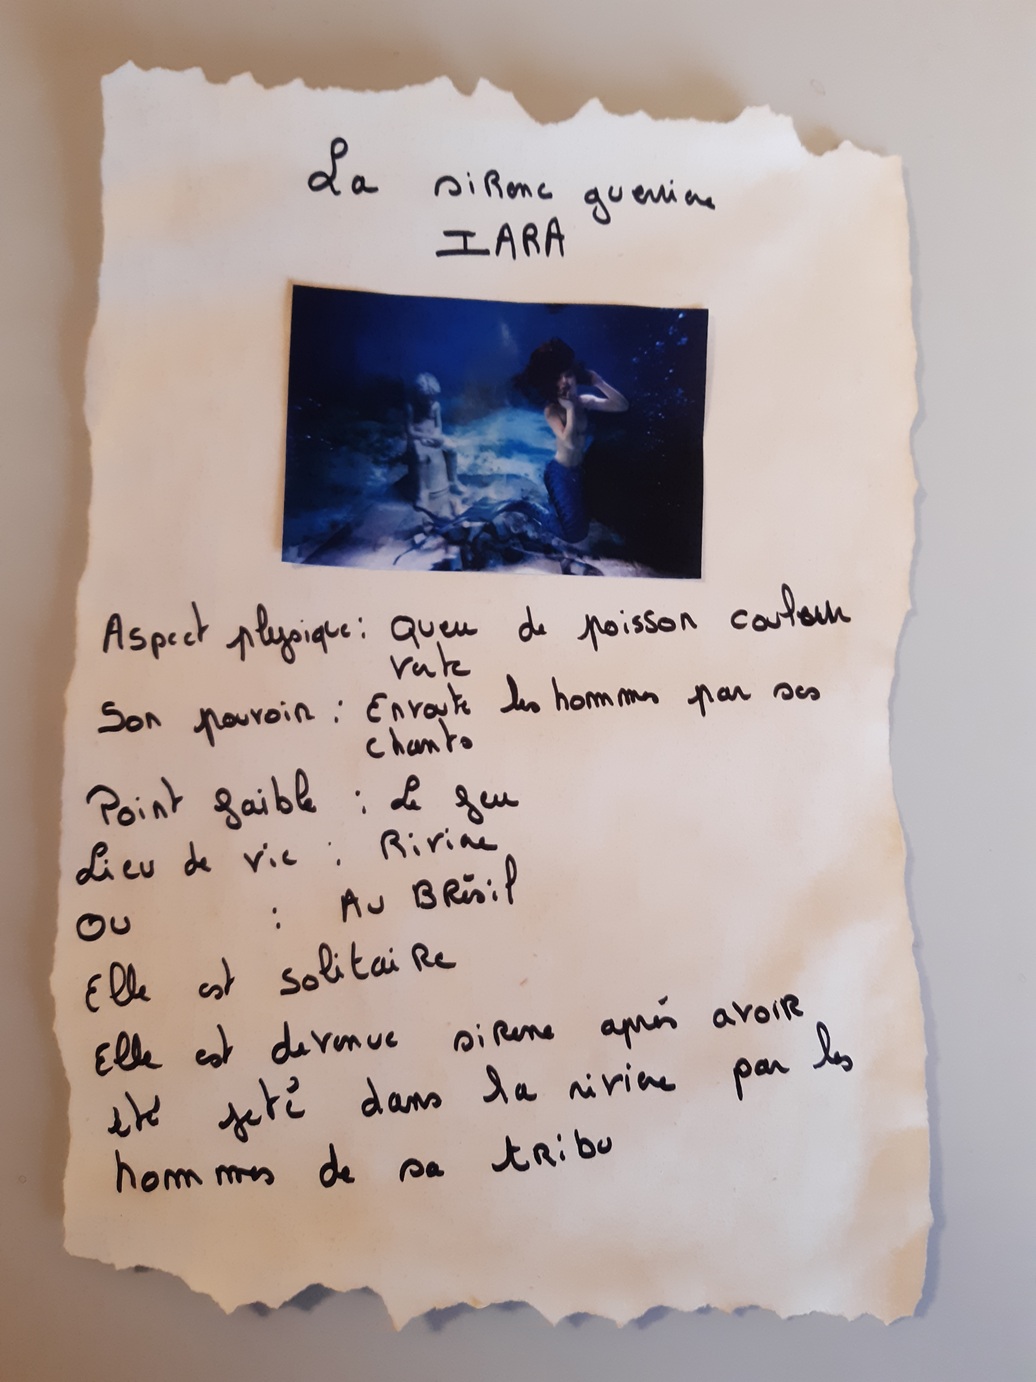 La sirene guerriere
IARA
Aspect physique : Queu de poisson couleur
verte
Son pouvoir : Envoute les hommes par ses
chants
Point faible : Le feu
Lieu de vie : Riviere
OU : Au BRésil
Elle est solitaiRe
Elle est devenue sirene après avoiR
été jeté dans la riviere par les
hommes de sa tRibu